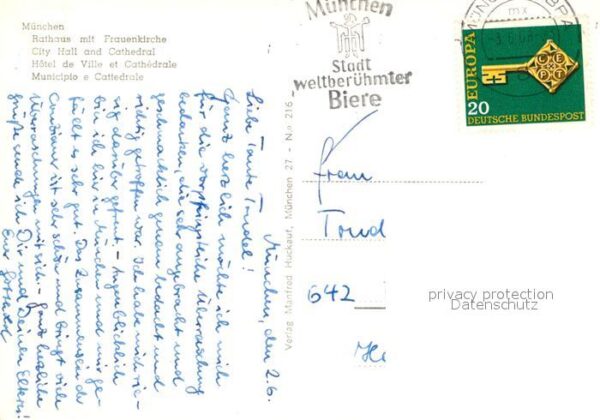 München
Rathaus mit Frauenkirche
City Hall and Cathedral
Hôtel de Ville et Cathédrale
Municipio e Cattedrale
München
Stadt
weltberühmter
Biere
EUROPA
CEPT
20
DEUTSCHE BUNDESPOST
München, den 2.6.
Liebe Tante Trudel!
Ganz herzlich möchte ich mich
für die Überraschung
bedanken, die sehr angebracht und
geschmacklich genau bedacht und
richtig getroffen war. Ich habe mich rie-
sig darüber gefreut. - Augenblicklich
bin ich hier in München und mir ge-
fällt es sehr gut. Das Zusammensein
ist sehr schön und bringt viele
Überraschungen mit sich. - Ganz herzliche
Grüße sende ich Dir und Deinen Eltern!
Euer
Verlag Manfred Huckauf, München 27 - No. 216
Frau
Trud
642
He
privacy protection
Datenschutz